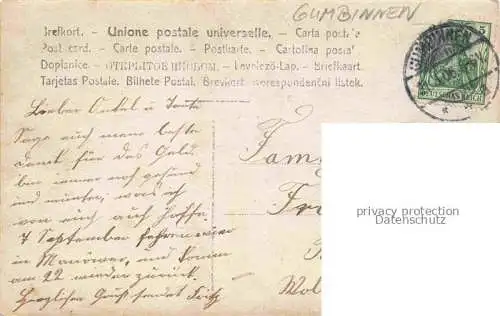 GUMBINNEN
Brefkort. - Unione postale universelle. - Carta
Post card. - Carte postale. - Postkarte. - Cartolina
Dopisnice. - ОТКРЫТОЕ ПИСЬМО. - Levelező-Lap. - Briefkaart
Tarjetas Postale. Bilhete Postal. Brevkort. Korespondenční lístek.
GUMBINNEN
5
DEUTSCHES REICH
Lieber Onkel u Tante
Sage euch mein beste
Dank für das Geld
bin immer noch gesund
und munter, was ich
von euch auch hoffe
7 September fahren wir
in Manöwer, und komm
am 22 wieder zurück.
Herzlichen Gruß sendet Fritz
Fam
Fr
Wol
privacy protection
Datenschutz